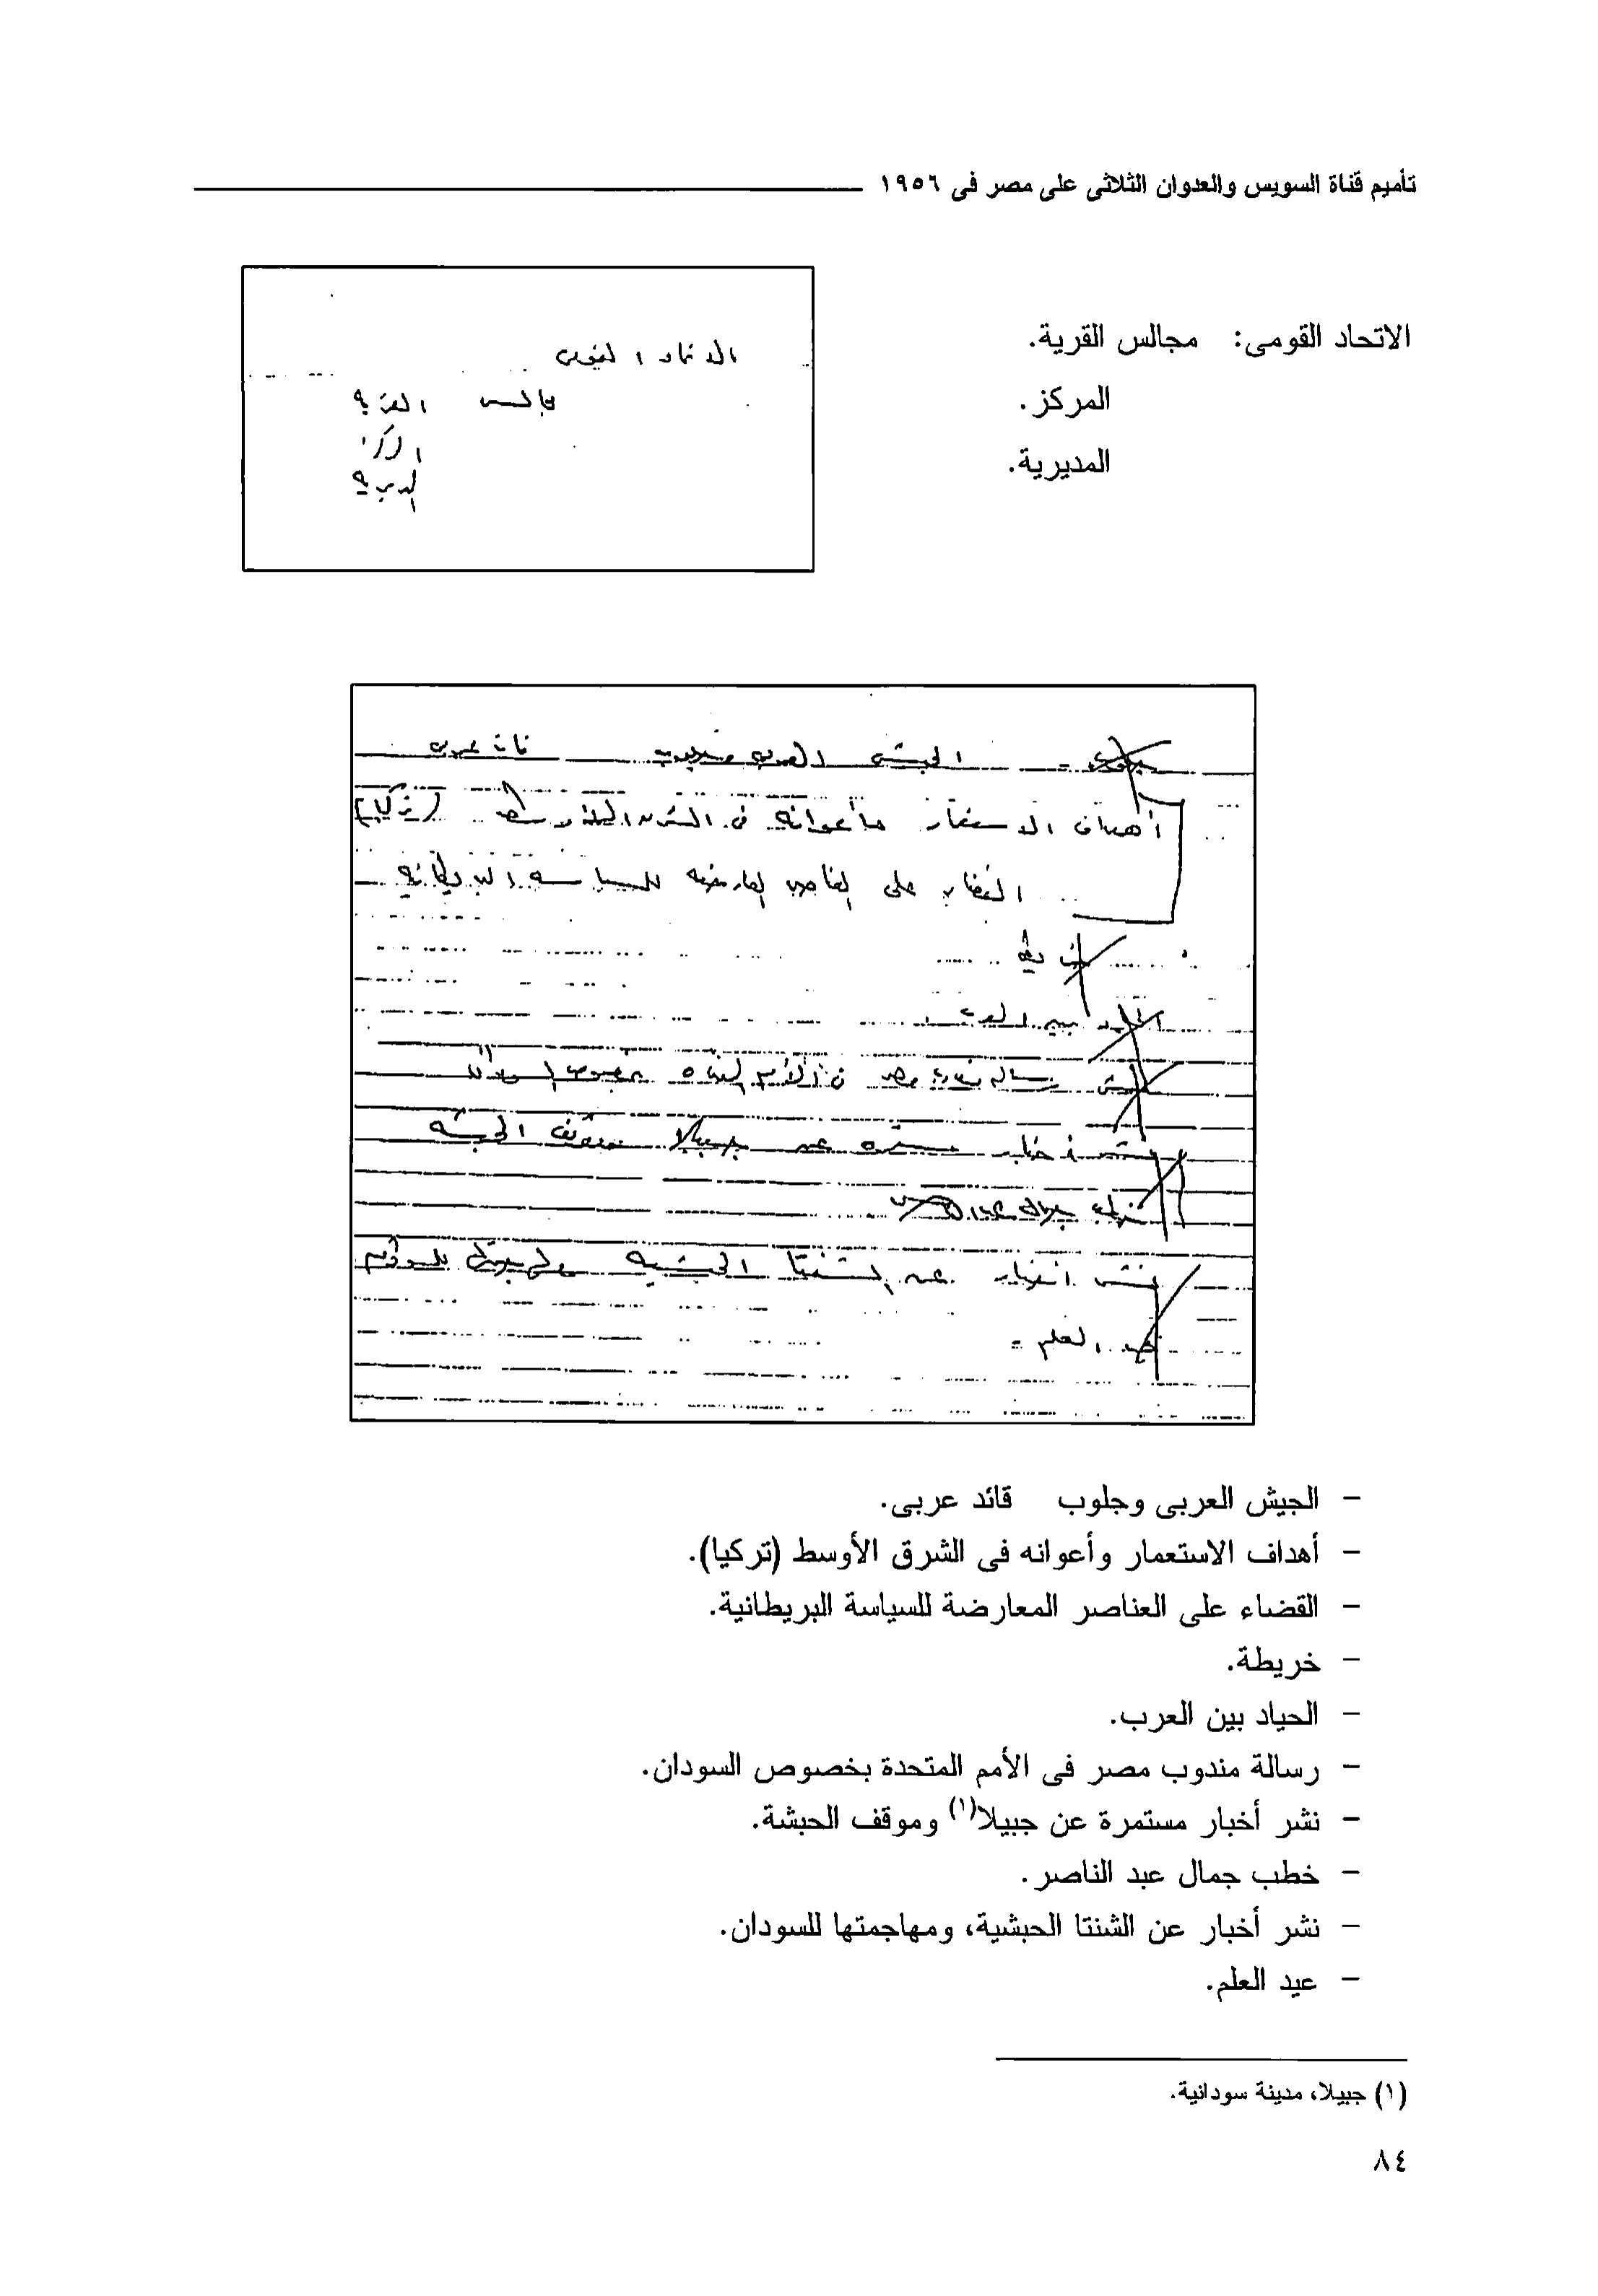 تأميم قناة السويس والعدوان الثلاثى على مصر فى ١٩٥٦
الاتحاد القومى: مجالس القرية.
المركز.
المديرية.
الاتحاد القومى
مجالس القرية
المركز
المديرية
الجيش العربى وجلوب قائد عربى
أهداف الاستعمار وأعوانه فى الشرق الأوسط (تركيا)
القضاء على العناصر المعارضه للسياسه البريطانيه
خريطه
الحياد بين العرب
رساله مندوب مصر فى الأمم المتحده بخصوص السودان
نشر أخبار مستمره عن جبيلا وموقف الحبشه
جمال عبد الناصر
نشر أخبار عن الشنتا الحبشيه للسودان
عيد العلم -
– الجيش العربى وجلوب قائد عربى.
– أهداف الاستعمار وأعوانه فى الشرق الأوسط (تركيا).
– القضاء على العناصر المعارضة للسياسة البريطانية.
– خريطة.
– الحياد بين العرب.
– رسالة مندوب مصر فى الأمم المتحدة بخصوص السودان.
– نشر أخبار مستمرة عن جبيلا(١) وموقف الحبشة.
– خطب جمال عبد الناصر.
– نشر أخبار عن الشنتا الحبشية، ومهاجمتها للسودان.
– عيد العلم.
(١) جبيلا، مدينة سودانية.
٨٤